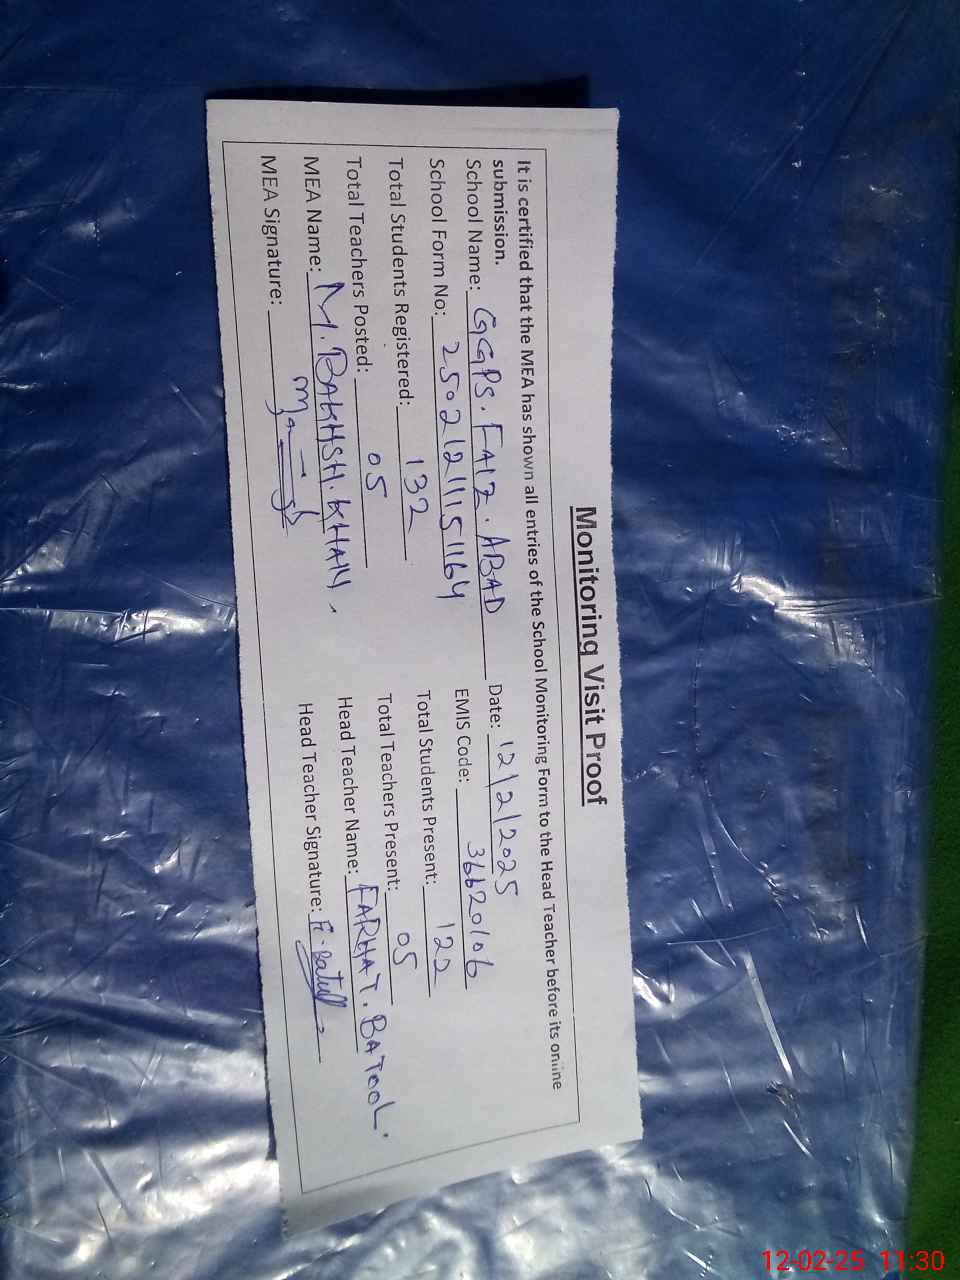 Monitoring Visit Proof
It is certified that the MEA has shown all entries of the School Monitoring Form to the Head Teacher before its online
submission.
School Name: GGPS. FAIZ. ABAD Date: 12/2/2025
School Form No: 25021211151164 EMIS Code: 36620106
Total Students Registered: 132 Total Students Present: 122
Total Teachers Posted: 05 Total Teachers Present: 05
MEA Name: M. BAKHSH. KHAN. Head Teacher Name: FARHAT. BATOOL.
MEA Signature: Head Teacher Signature: F. Batull
12-02-25 11:30